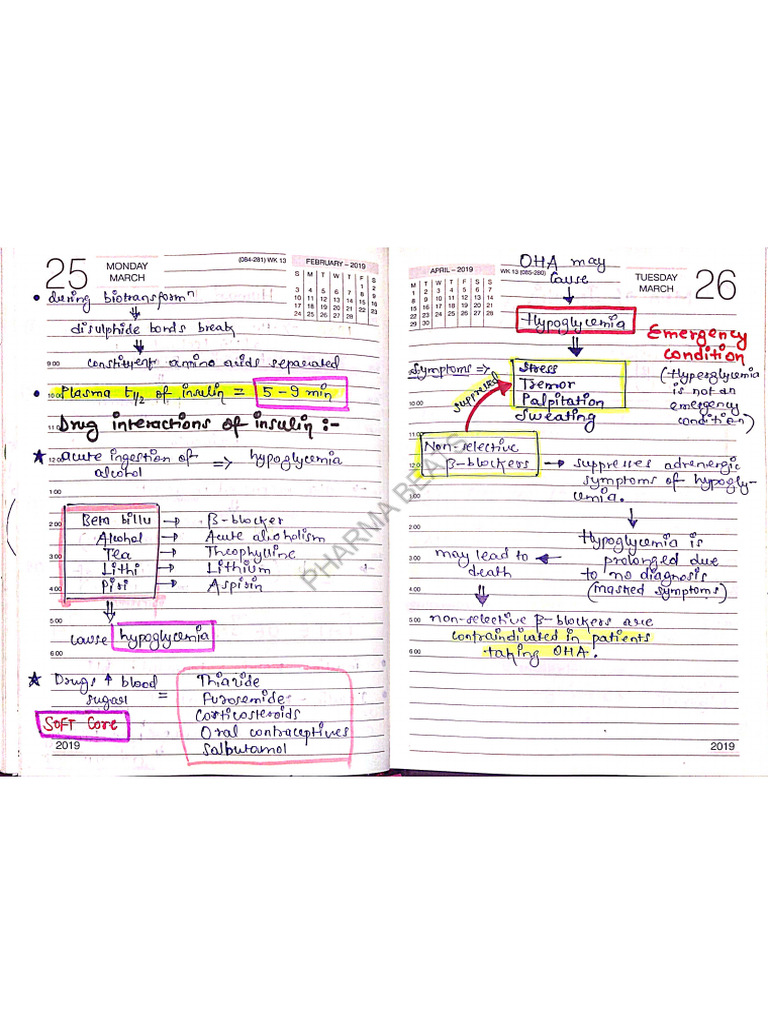 25
MONDAY
MARCH
(084-281) WK 13
FEBRUARY – 2019
S M T W T F S
1 2
3 4 5 6 7 8 9
10 11 12 13 14 15 16
17 18 19 20 21 22 23
24 25 26 27 28
• during biotransformⁿ
⇓
disulphide bonds break
⇓
9:00 constituent amino acids separated
• 10:00 Plasma t1/2 of insulin = 5 – 9 min
11:00 Drug interactions of insulin :-
★ 12:00 acute ingestion of alcohol => hypoglycemia
1:00
2:00 Beta billu → β-blocker
Alcohol → Acute alcoholism
3:00 Tea → Theophylline
Lithi → Lithium
4:00 Pisi → Aspirin
⇓
5:00
cause hypoglycemia
6:00
★ Drugs ↑ blood sugar =
Thiazide
Furosemide
Corticosteroids
Oral contraceptives
Salbutamol
SOFT Core
2019
APRIL – 2019
M T W T F S S
1 2 3 4 5 6 7
8 9 10 11 12 13 14
15 16 17 18 19 20 21
22 23 24 25 26 27 28
29 30
WK 13 (085-280)
TUESDAY
MARCH
26
OHA may
cause
↓
Hypoglycemia
Emergency
condition
(Hyperglycemia
is not an
emergency
condition)
⇓
Symptoms =>
Stress
Tremor
Palpitation
Sweating
suppressed
10:00
11:00
Non-selective
12:00 β-blockers → suppresses adrenergic
symptoms of hypogly-
cemia.
1:00
2:00
↓
Hypoglycemia is
3:00 may lead to ← prolonged due
death to no diagnosis
4:00 (masked symptoms)
⇓
5:00 non-selective β-blockers are
contraindicated in patients
6:00 taking OHA.
2019
PHARMA BEATS